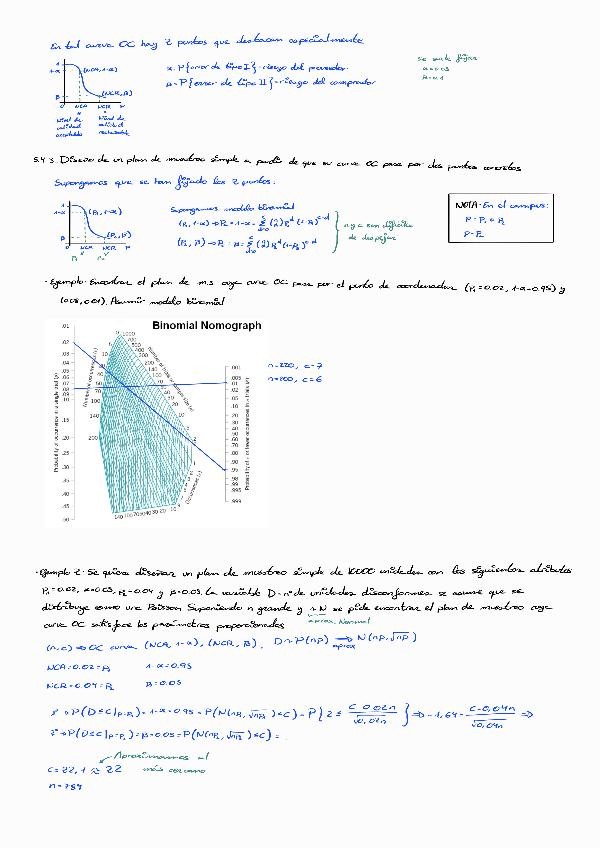 En tal curva OC hay 2 puntos que destacan especialmente
1
1-α
(NCA, 1-α)
β
(NCR, β)
NCA NCR p
Nivel de calidad aceptable
Nivel de calidad rechazable
α = P{error de tipo I} = riesgo del proveedor
β = P{error de tipo II} = riesgo del comprador
Se suele fijar
α=0.05
β=0.1
5.4.3. Diseño de un plan de muestreo simple a partir de que su curva OC pase por dos puntos concretos
Supongamos que se han fijado los 2 puntos:
1
1-α
(P₁, 1-α)
β
(P₂, β)
0 NCA NCR p
P₁ P₂
Supongamos modelo binomial
n y c son difíciles
de despejar
NOTA: En el campus:
Ejemplo: Encontrar el plan de m.s. cuya curva OC pase por el punto de coordenadas (P₁=0.02, 1-α=0.95) y
(0.08, 0.01). Asumir modelo binomial
Binomial Nomograph
Probability of occurrence in a single trial (p)
Number of trials or sample size (n)
Occurrences (c)
Probability of c or fewer occurrences in n trials (P)
n=220, c=7
n=200, c=6
Ejemplo 2: Se quiere diseñar un plan de muestreo simple de 10000 unidades con los siguientes atributos
P₁=0.02, α=0.05, P₂=0.04 y β=0.05. La variable D=nº de unidades disconformes se asume que se
distribuye como una Poisson. Suponiendo n grande y ≈N se pide encontrar el plan de muestreo cuya
curva OC satisface los parámetros proporcionados
aprox. Normal
(n,c) ⇒ OC curva (NCA, 1-α), (NCR, β), D~P(np) → N(np, √np)
aprox
NCA=0.02=P₁ 1-α=0.95
NCR=0.04=P₂ β=0.05
1º → P(D≤c|p=P₁)=1-α=0.95=P(N(nP₁, √nP₁)≤c)=P{Z≤ (c-0.02n)/√0.02n} ⇒ -1,64= (c-0,04n)/√0,04n ⇒
2º → P(D≤c|p=P₂)=β=0.05=P(N(nP₂, √nP₂)≤c)=...
Aproximamos al
más cercano
c=22,1 ≈ 22
n=784